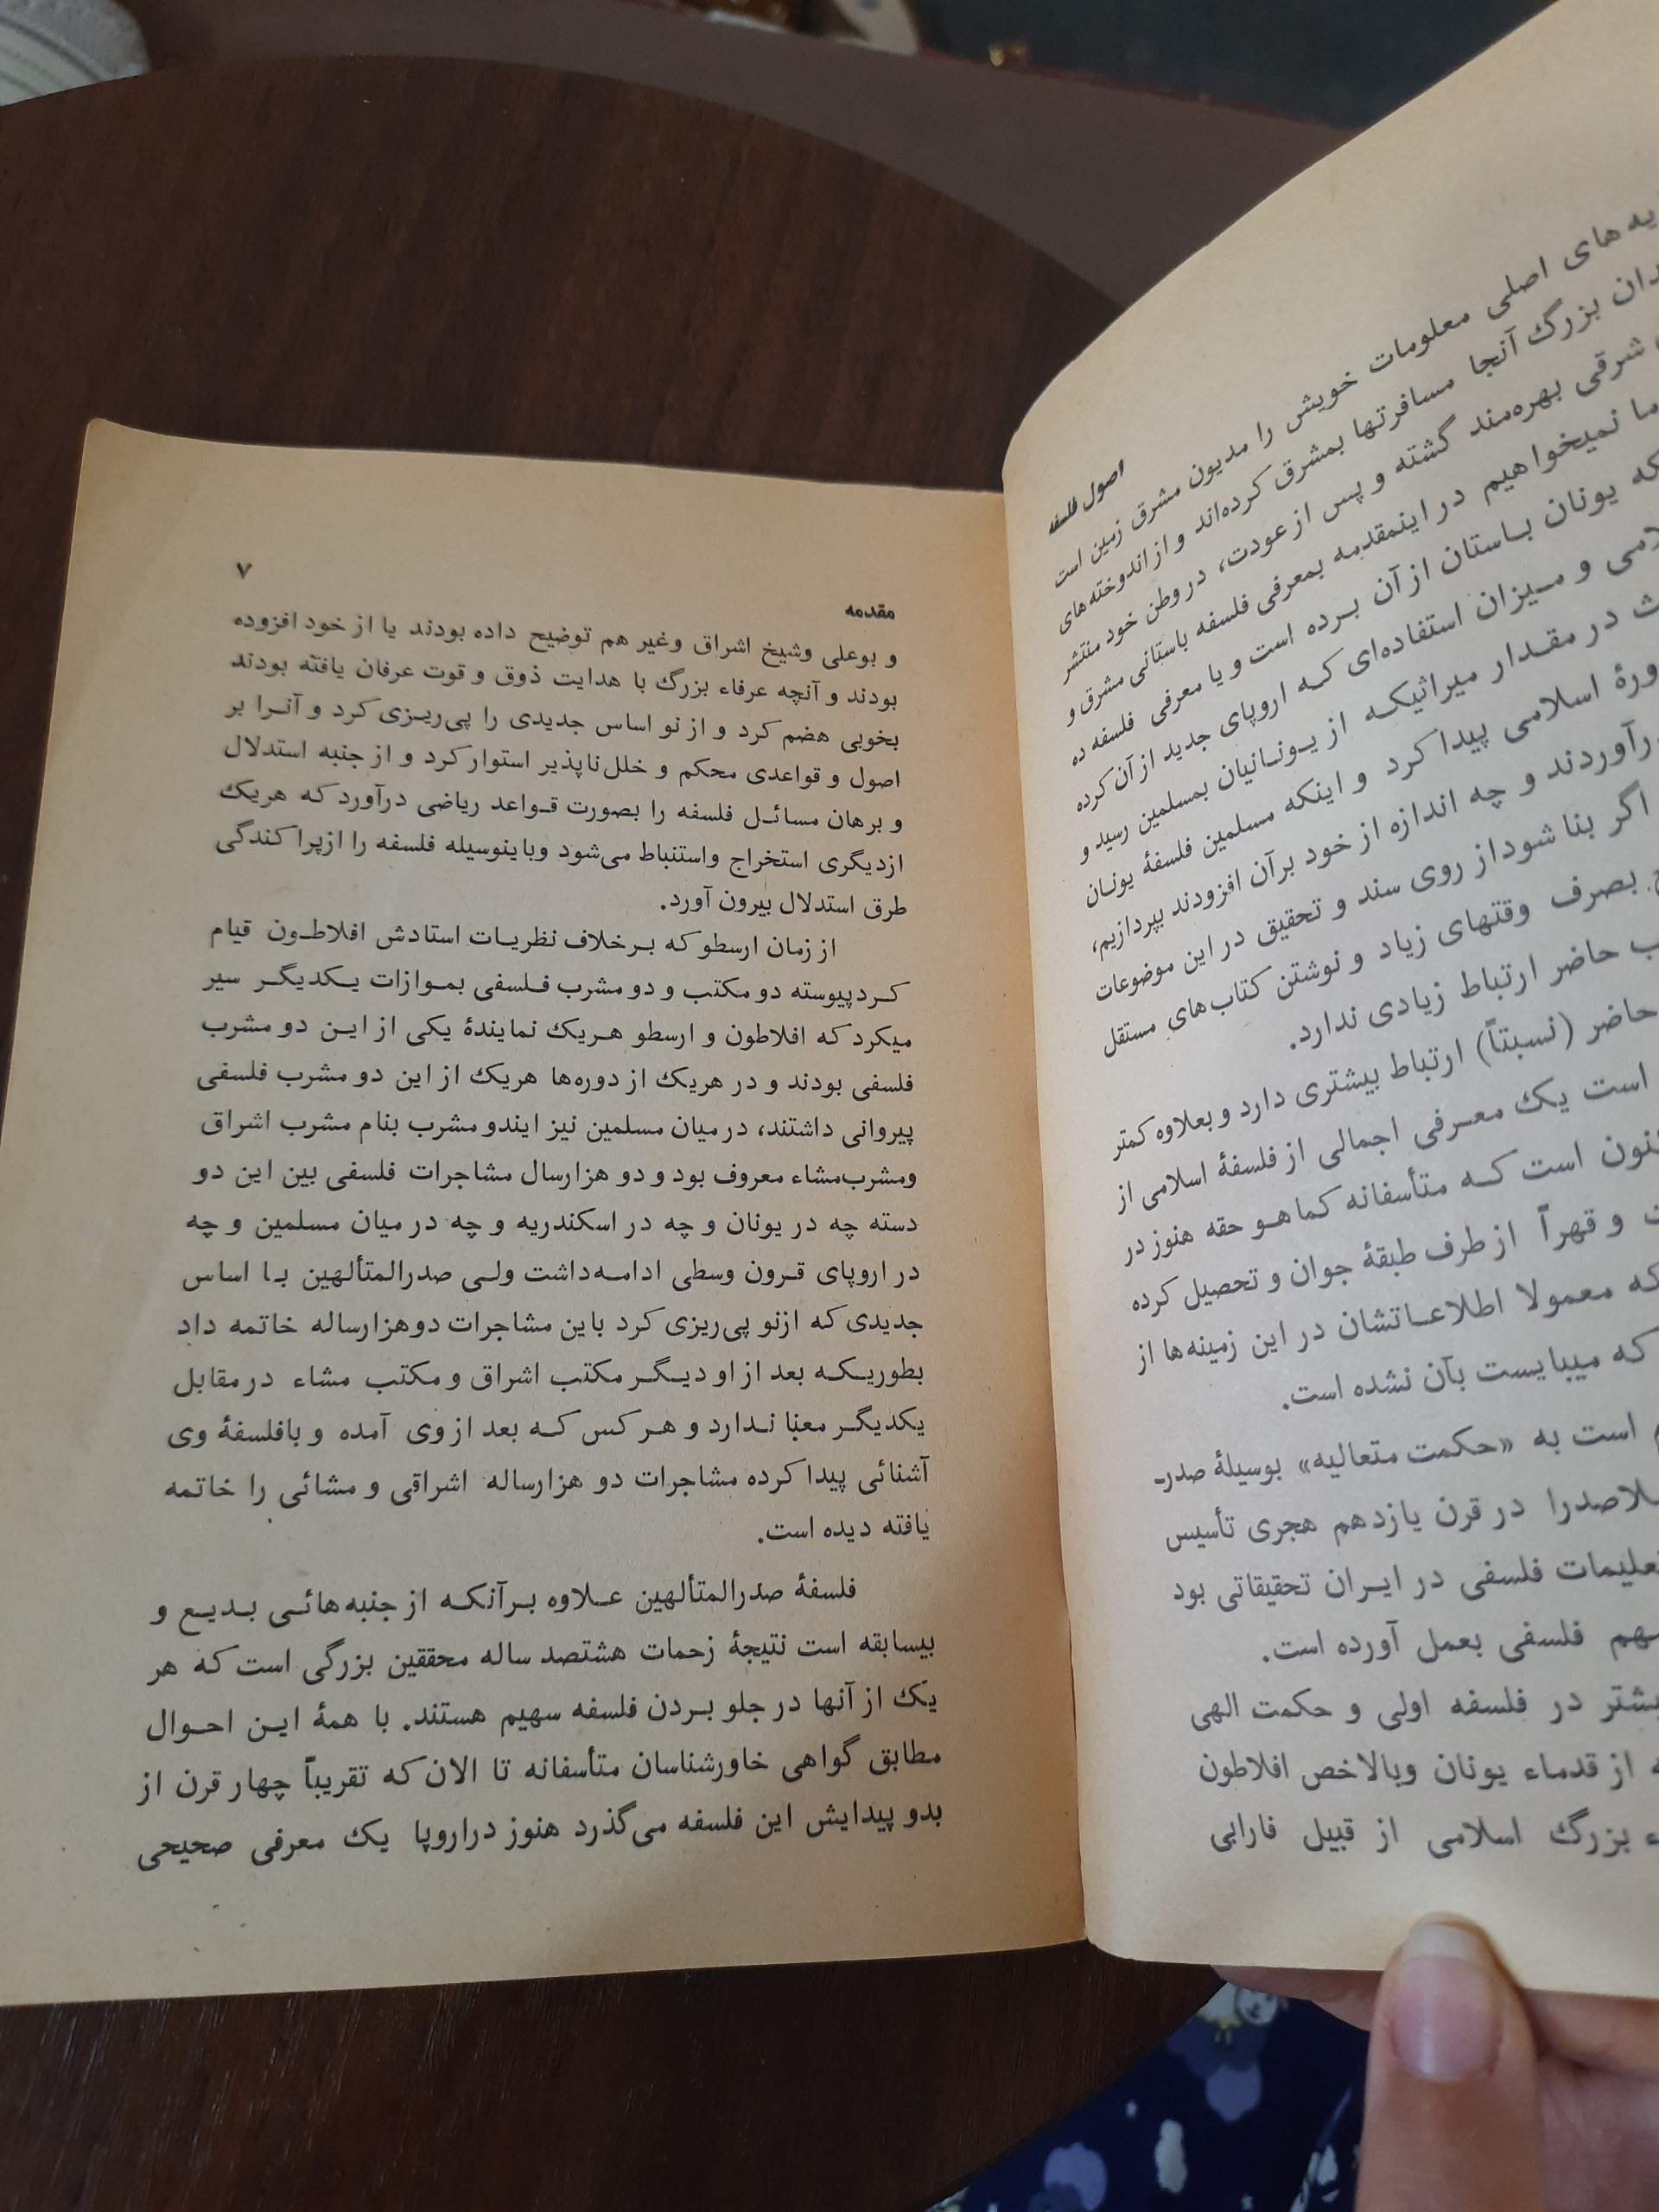 اصول فلسفه
یه های اصلی معلومات خویش را مدیون مشرق زمین است
دان بزرگ آنجا مسافرتها بمشرق کرده‌اند و از اندوخته های
شرقی بهره‌مند گشته و پس از عودت، در وطن خود منتشر
ما نمیخواهیم در اینمقدمه بمعرفی فلسفه باستانی مشرق و
که یونان باستان از آن برده است و یا معرفی فلسفه ده
لامی و میزان استفاده‌ای که اروپای جدید از آن کرده
ث در مقدار میراثیکه از یونانیان بمسلمین رسید و
ورهٔ اسلامی پیدا کرد و اینکه مسلمین فلسفهٔ یونان
رآوردند و چه اندازه از خود برآن افزودند بپردازیم،
اگر بنا شود از روی سند و تحقیق در این موضوعات
ج بصرف وقتهای زیاد و نوشتن کتاب‌های مستقل
ب حاضر ارتباط زیادی ندارد.
حاضر (نسبتاً) ارتباط بیشتری دارد و بعلاوه کمتر
است یک معرفی اجمالی از فلسفهٔ اسلامی از
کنون است که متأسفانه کماهو حقه هنوز در
ت و قهراً از طرف طبقهٔ جوان و تحصیل کرده
که معمولا اطلاعاتشان در این زمینه‌ها از
که میبایست بآن نشده است.
م است به «حکمت متعالیه» بوسیلهٔ صدر-
لاصدرا در قرن یازدهم هجری تأسیس
تعلیمات فلسفی در ایران تحقیقاتی بود
هم فلسفی بعمل آورده است.
بیشتر در فلسفه اولی و حکمت الهی
ه از قدماء یونان وبالاخص افلاطون
ء بزرگ اسلامی از قبیل فارابی
مقدمه ۷
و بوعلی وشیخ اشراق وغیر هم توضیح داده بودند یا از خود افزوده
بودند و آنچه عرفاء بزرگ با هدایت ذوق و قوت عرفان یافته بودند
بخوبی هضم کرد و از نو اساس جدیدی را پی‌ریزی کرد و آنرا بر
اصول و قواعدی محکم و خلل‌ناپذیر استوار کرد و از جنبه استدلال
و برهان مسائل فلسفه را بصورت قواعد ریاضی درآورد که هریک
ازدیگری استخراج واستنباط می‌شود وباینوسیله فلسفه را ازپراکندگی
طرق استدلال بیرون آورد.
از زمان ارسطو که برخلاف نظریات استادش افلاطون قیام
کردپیوسته دو مکتب و دو مشرب فلسفی بموازات یکدیگر سیر
میکرد که افلاطون و ارسطو هریک نمایندهٔ یکی از این دو مشرب
فلسفی بودند و در هریک از دوره‌ها هریک از این دو مشرب فلسفی
پیروانی داشتند، درمیان مسلمین نیز ایندو مشرب بنام مشرب اشراق
ومشرب‌مشاء معروف بود و دو هزارسال مشاجرات فلسفی بین این دو
دسته چه در یونان و چه در اسکندریه و چه در میان مسلمین و چه
در اروپای قرون وسطی ادامه‌داشت ولی صدرالمتألهین با اساس
جدیدی که ازنو پی‌ریزی کرد باین مشاجرات دوهزارساله خاتمه داد
بطوریکه بعد از او دیگر مکتب اشراق و مکتب مشاء در مقابل
یکدیگر معنا ندارد و هر کس که بعد از وی آمده و بافلسفهٔ وی
آشنائی پیدا کرده مشاجرات دو هزارساله اشراقی و مشائی را خاتمه
یافته دیده است.
فلسفهٔ صدرالمتألهین علاوه برآنکه از جنبه‌هائی بدیع و
بیسابقه است نتیجهٔ زحمات هشتصد ساله محققین بزرگی است که هر
یک از آنها در جلو بردن فلسفه سهیم هستند. با همهٔ این احوال
مطابق گواهی خاورشناسان متأسفانه تا الان که تقریباً چهار قرن از
بدو پیدایش این فلسفه می‌گذرد هنوز دراروپا یک معرفی صحیحی